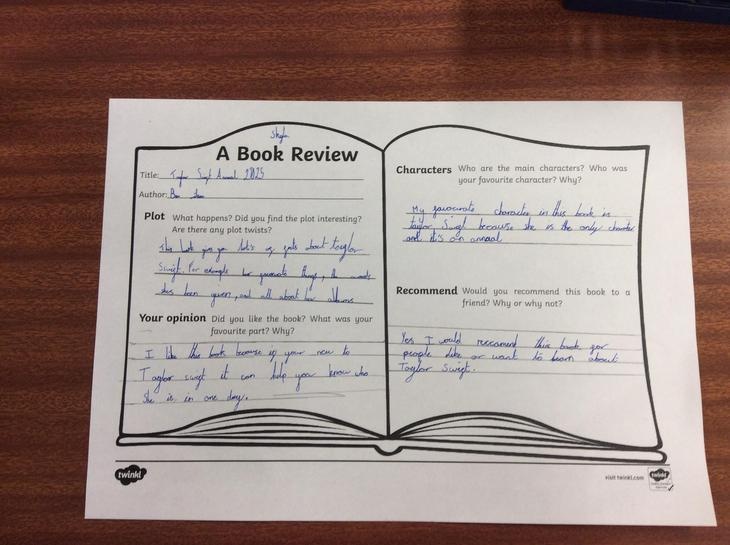 A Book Review
Title: Taylor Swift Annual 2025
Author: Ben
Plot What happens? Did you find the plot interesting?
Are there any plot twists?
This book give you lot's of facts about taylor
Swift. For example her favourate things, the awards
shes been given, and all about her albums
Your opinion Did you like the book? What was your
favourite part? Why?
I like this book because if your new to
Taylor swift it can help you know who
she is in one day.
Characters Who are the main characters? Who was
your favourite character? Why?
My favourate character in this book is
taylor Swift because she is the only character
and it's an annual
Recommend Would you recommend this book to a
friend? Why or why not?
Yes I would recomend this book for
people like or want to learn about
Taylor Swift.
twinkl
visit twinkl.com
twinkl